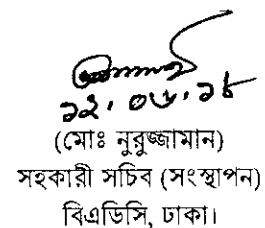 ১২.০৬.১৮
(মোঃ নুরুজ্জামান)
সহকারী সচিব (সংস্থাপন)
বিএডিসি, ঢাকা।